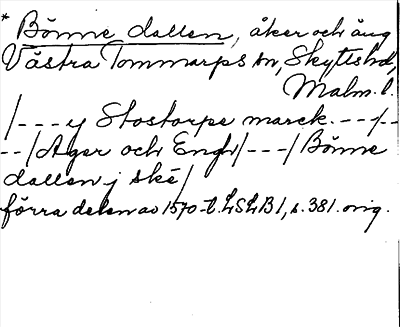 * Bönne dallen, åker och äng
Västra Tommarps sn, Skytts hd,
Malm. l.
/---y Stostorps marck.---/--
--/Ager och Engh/---/Bönne
dallen j ské/
förra delen av 1570-t. LSLB1, s. 381. orig.